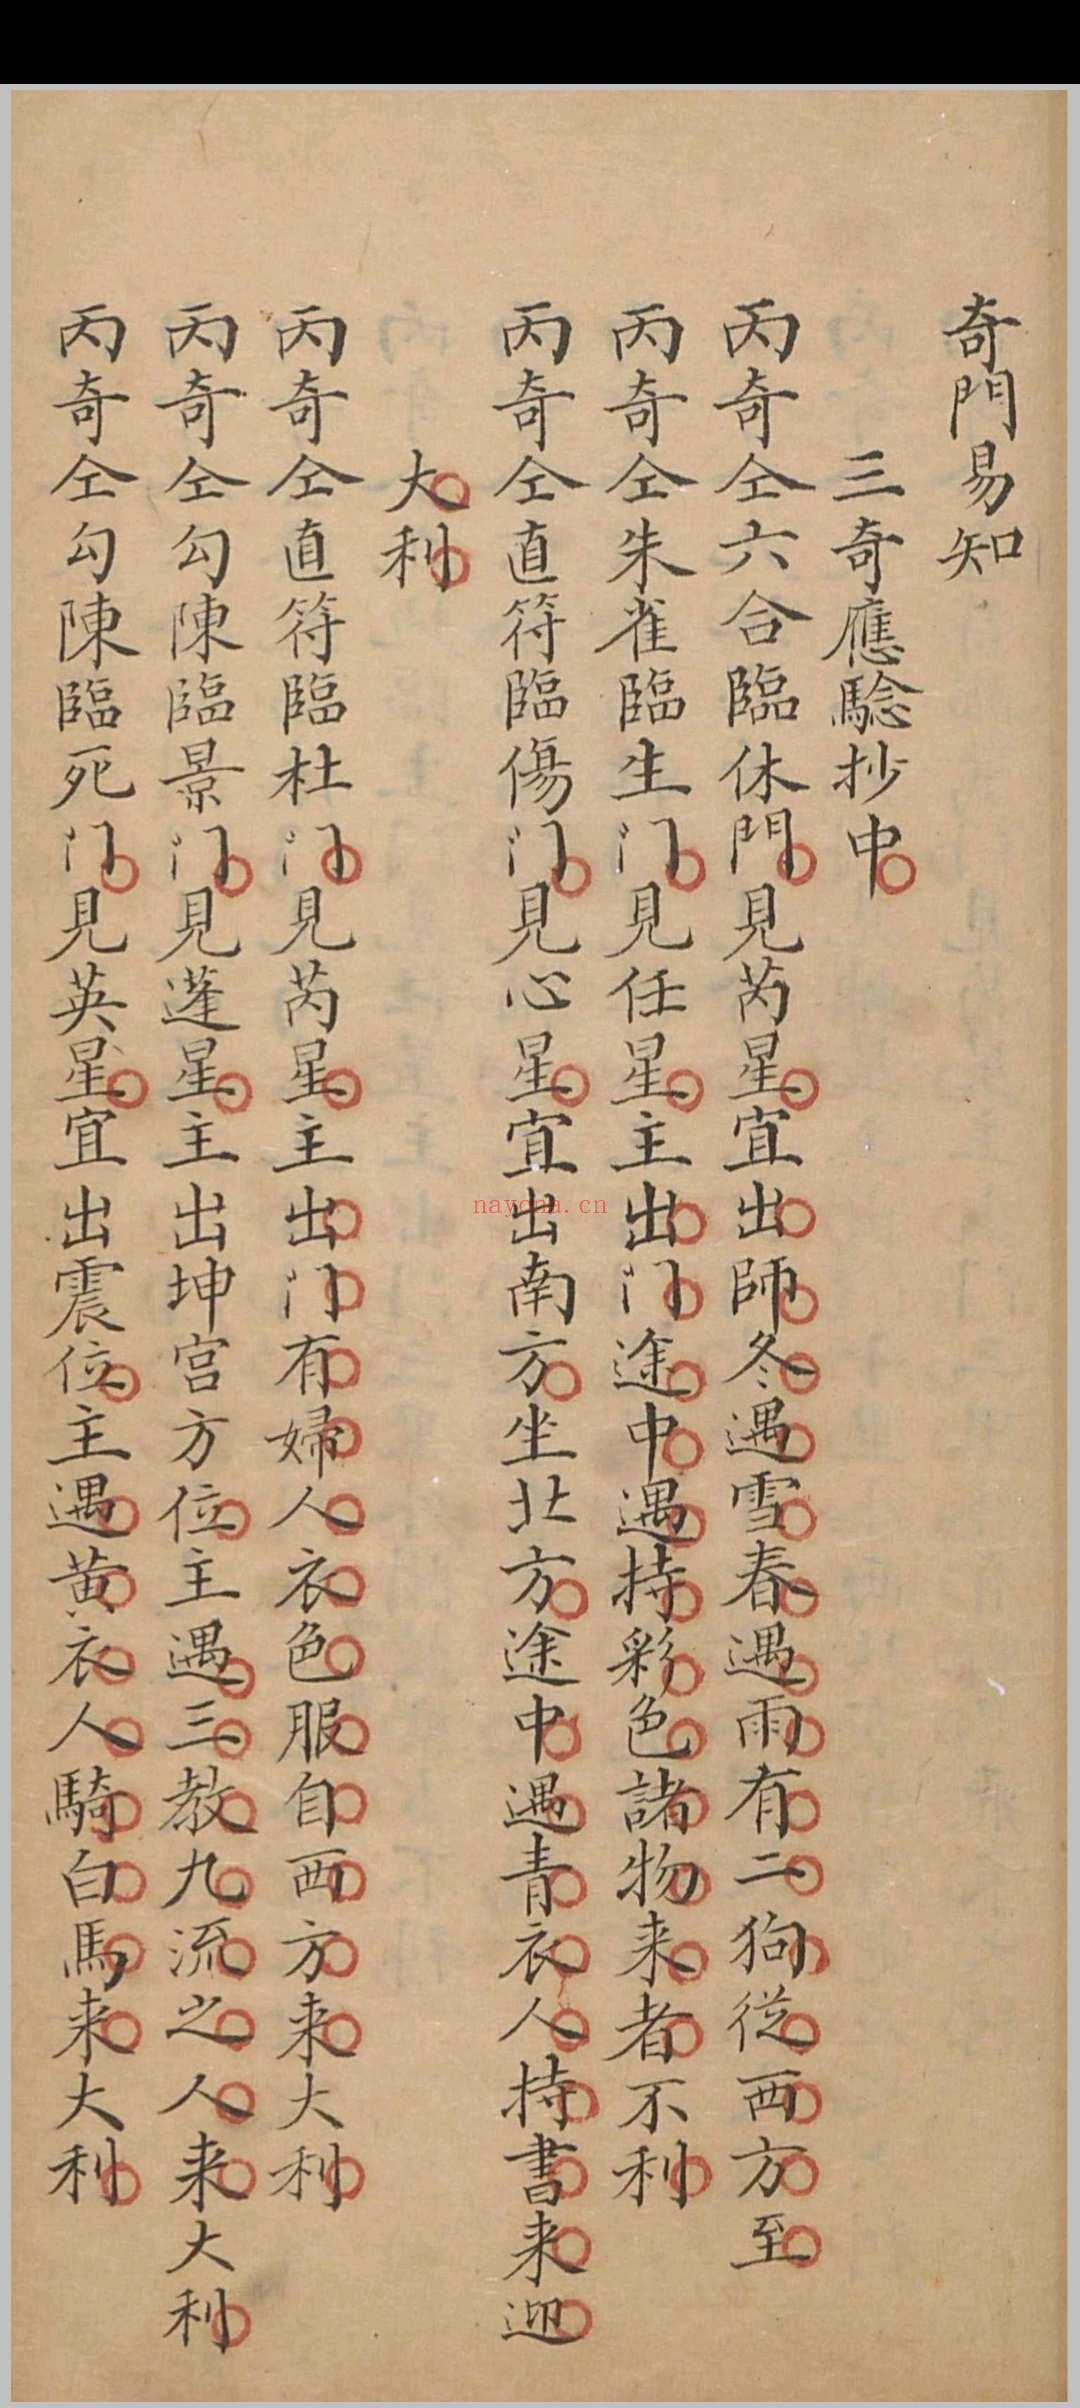 奇門易知
三奇應驗抄中
丙奇仝六合臨休門見芮星宜出師冬遇雪春遇雨有二狗從西方至
丙奇仝朱雀臨生门見任星主出门途中遇持彩色諸物来者不利
丙奇仝直符臨傷门見心星宜出南方坐北方途中遇青衣人持書来迎
大利
丙奇仝直符臨杜门見芮星主出门有婦人衣色服自西方来大利
丙奇仝勾陳臨景门見蓬星主出坤宫方位主遇三教九流之人来大利
丙奇仝勾陳臨死门見英星宜出震位主遇黄衣人騎白馬来大利
nayona.cn